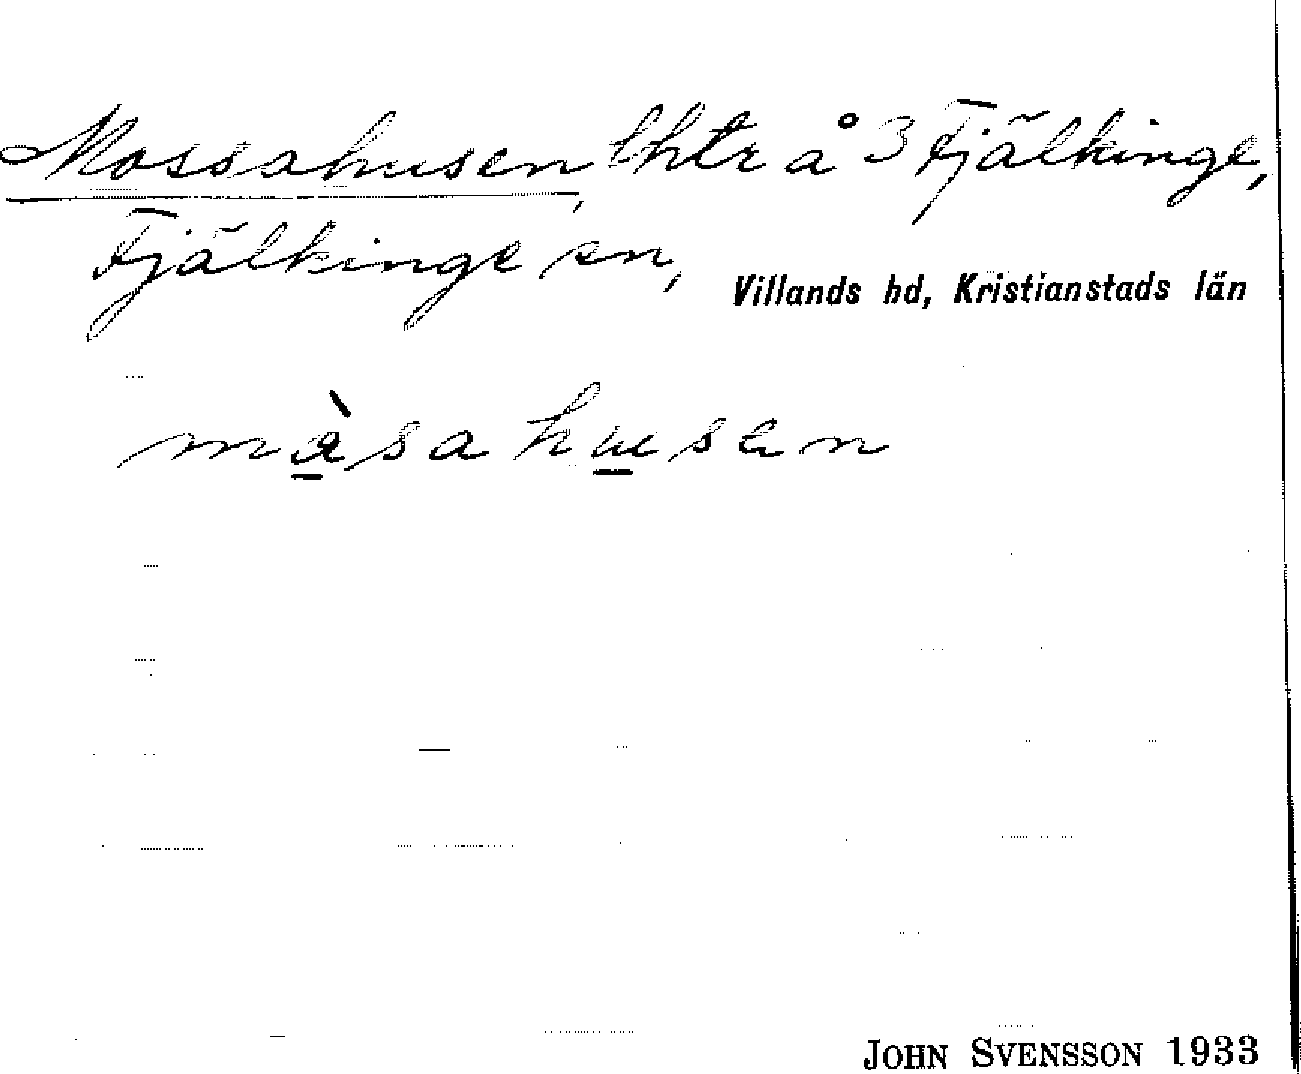 Mossahusen, lhtr å 3 Fjälkinge,
Fjälkinge sn, Villands hd, Kristianstads län
màsahusen
JOHN SVENSSON 1933